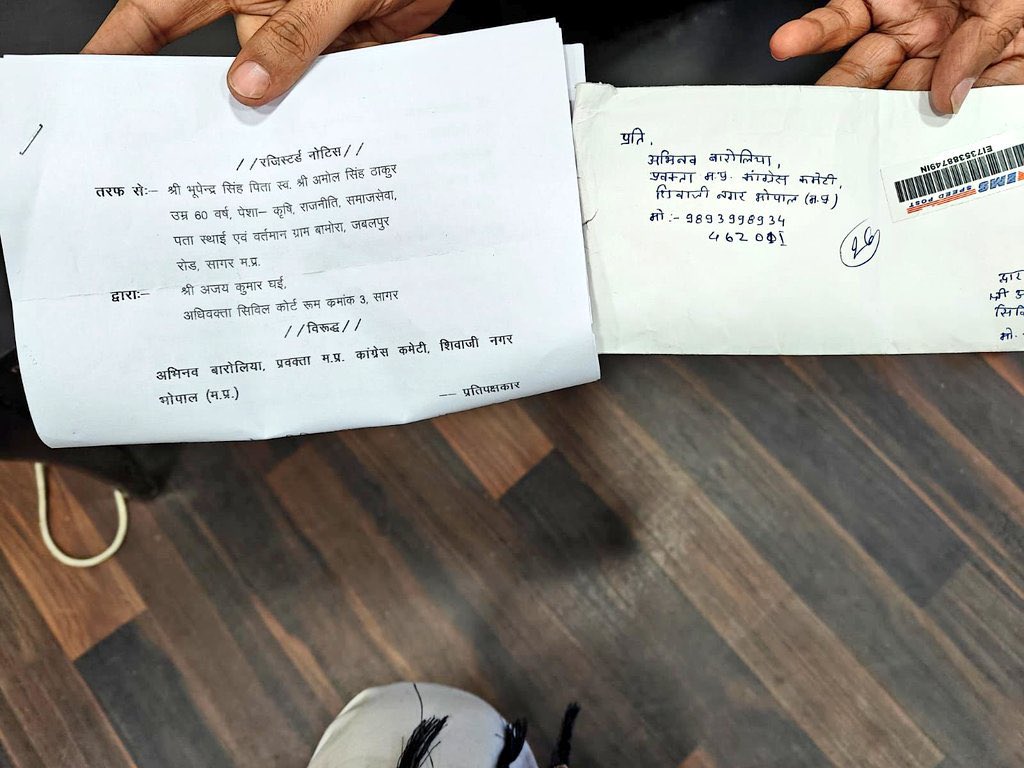 //रजिस्टर्ड नोटिस//
तरफ से:– श्री भूपेन्द्र सिंह पिता स्व. श्री अमोल सिंह ठाकुर
उम्र 60 वर्ष, पेशा– कृषि, राजनीति, समाजसेवा,
पता स्थाई एवं वर्तमान ग्राम बामोरा, जबलपुर
रोड, सागर म.प्र.
द्वारा:– श्री अजय कुमार घई,
अधिवक्ता सिविल कोर्ट रूम कमांक 3, सागर
//विरूद्ध//
अभिनव बारोलिया, प्रवक्ता म.प्र. कांग्रेस कमेटी, शिवाजी नगर
भोपाल (म.प्र.) –– प्रतिपक्षकार
प्रति,
अभिनव बारोलिया,
प्रवक्ता म.प्र. कांग्रेस कमेटी,
शिवाजी नगर भोपाल (म.प्र)
मो:- 9893998934
462001
EI735388749IN
EMS SPEED POST